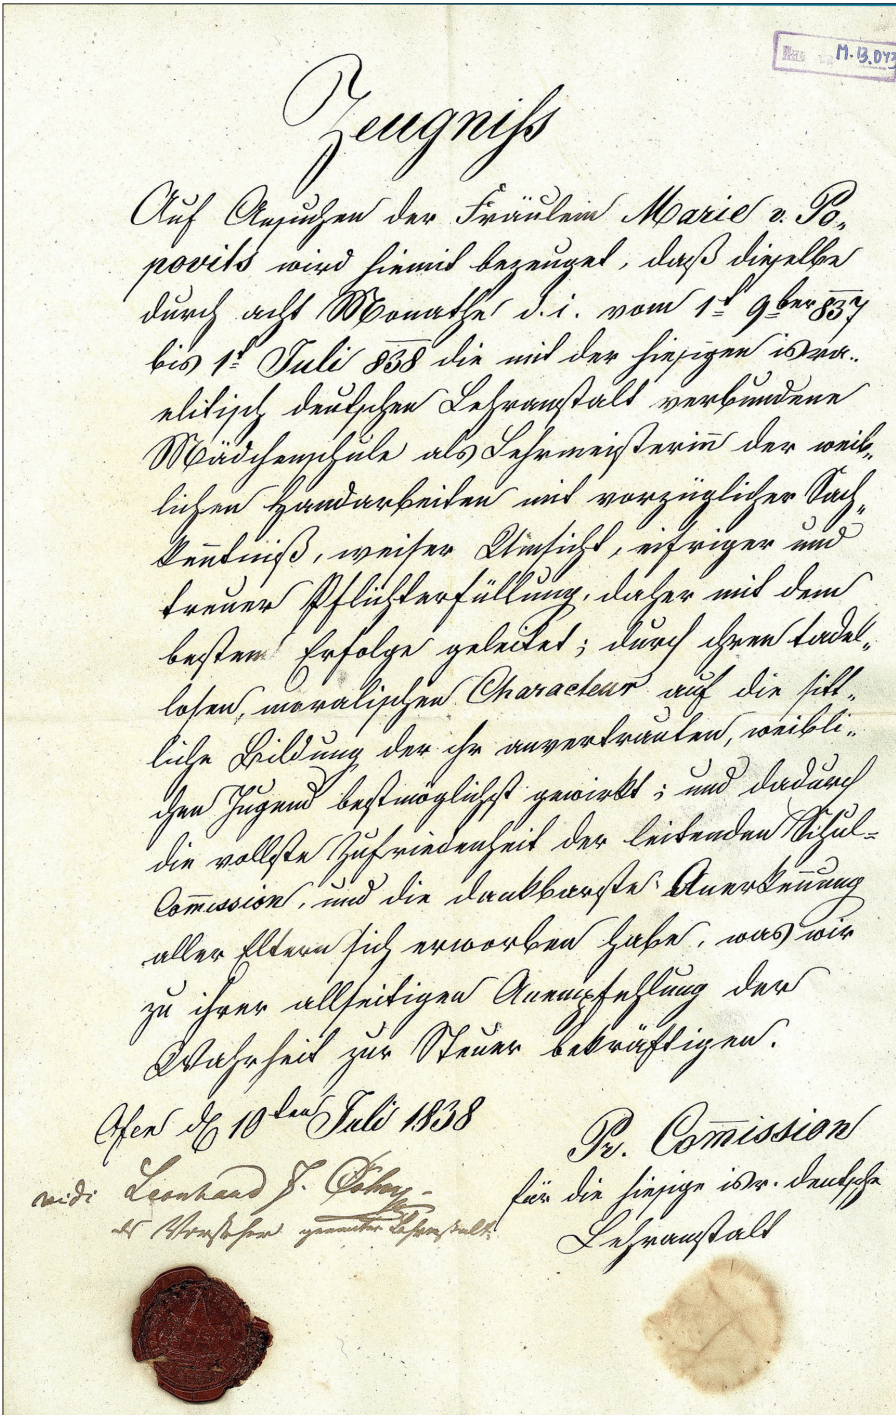 M.13.043
Zeugniß
Auf Ansuchen der Fräulein Marie v. Po-
povits wird hiemit bezeuget, daß dieselbe
durch acht Monathe d. i. vom 1t 9ber 837
bis 1t Juli 838 die mit der hiesigen isra-
elitisch deutschen Lehranstalt verbundene
Mädchenschule als Lehrmeisterin̄ der weib-
lichen Handarbeiten mit vorzüglicher Sach-
ken̄tniß, weiser Umsicht, eifriger und
treuer Pflichterfüllung, daher mit dem
besten Erfolge geleitet; durch ihren tadel-
losen, moralischen Characteur auf die sitt-
liche Bildung der ihr anvertrauten, weibli-
chen Jugend bestmöglichst gewirkt; und dadurch
die vollste Zufriedenheit der leitenden Schul=
Com̄ission, und die dankbarste Anerken̄ung
aller Eltern sich erworben habe, was wir
zu ihrer allseitigen Anempfehlung der
Wahrheit zur Steuer bekräftigen.
Ofen d 10ten Juli 1838
Pr. Com̄ission
für die hiesige isr. deutsche
Lehranstalt
vidi Leonhard J.
als Vorsteher genannter Lehranstalt